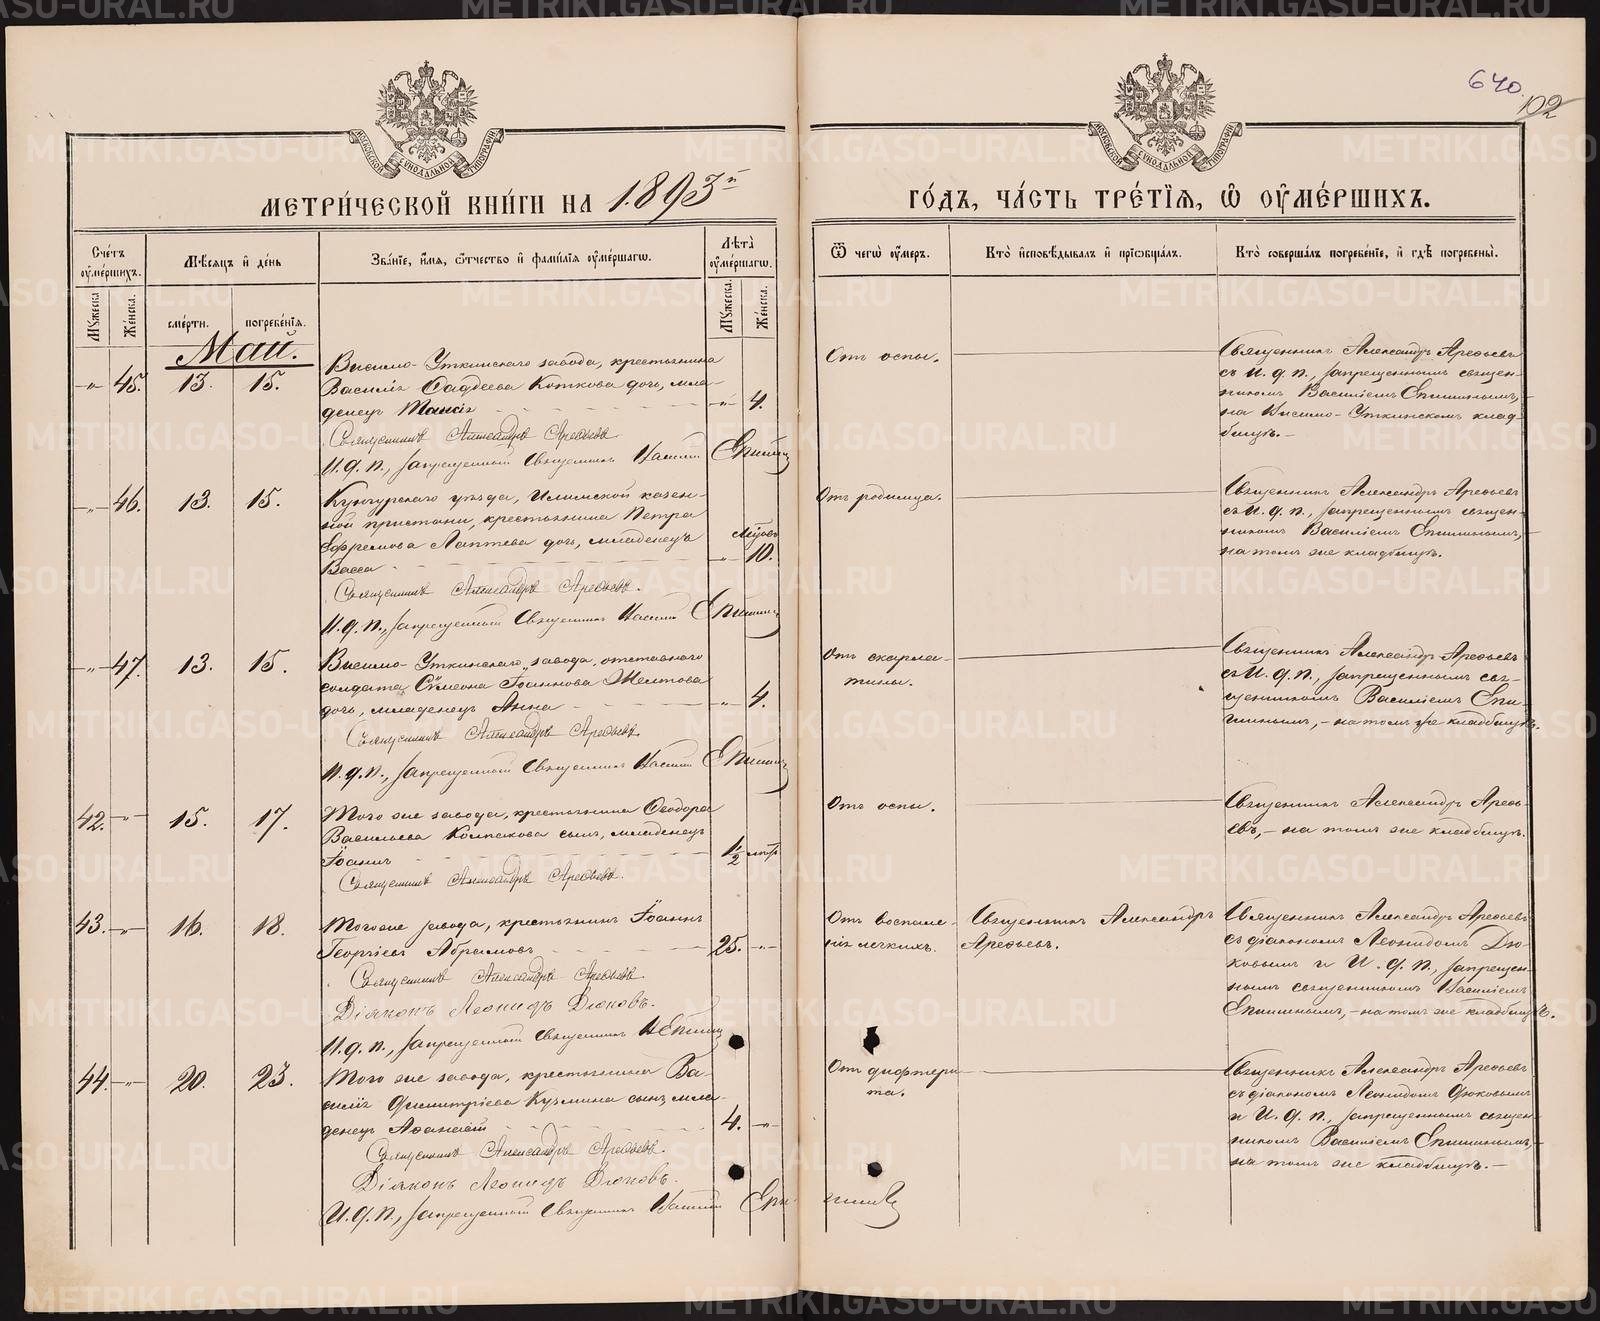 640.
102
МЕТРИ́ЧЕСКОЙ КНИ́ГИ НА 1893й
ГО́ДЪ, ЧА́СТЬ ТРЕ́ТІѦ, Ѽ ОУ҆МЕ́РШИХЪ.
Сче́тъ оу҆ме́ршихъ.
Му́жеска
Же́нска.
Мѣ́сяцъ и҆ де́нь
сме́рти.
погребе́нїѧ.
Зва́нїе, и҆́мѧ, ѻ҆́тчество и҆ фами́лїѧ оу҆ме́ршагѡ.
Лѣ́та оу҆ме́ршагѡ.
Му́жеска.
Же́нска.
Ѿ чегѡ̀ оу҆́меръ.
Кто̀ и҆сповѣ́дывалъ и҆ прїѡбща́лъ.
Кто̀ соверша́лъ погребе́нїе, и҆ гдѣ̀ погребены̀.
Май.
-„- 45. 13. 15.
Висимо-Уткинскаго завода, крестьянина
Василія Фаддеева Коткова дочь, мла-
денецъ Таисія -„- 4.
Священникъ Александръ Арефьевъ
И. д. п., запрещенный Священникъ Василій Епишинъ
Отъ оспы.
Священникъ Александръ Арефьевъ
съ И. д. п., запрещеннымъ священ-
никомъ Василіемъ Епишинымъ,
на Висимо-Уткинскомъ клад-
бищѣ.-
-„- 46. 13. 15.
Кунгурскаго уѣзда, Илимской казен-
ной пристани, крестьянина Петра
Ефремова Лаптева дочь, младенецъ
Васса -„- 10.
Священникъ Александръ Арефьевъ.
И. д. п., запрещенный Священникъ Василій Епишинъ
Отъ родимца.
Священникъ Александръ Арефьевъ
съ И. д. п., запрещеннымъ священ-
никомъ Василіемъ Епишинымъ,
на томъ же кладбищѣ.
-„- 47. 13. 15.
Висимо-Уткинскаго завода, отставнаго
солдата Сѵмеона Іоаннова Желтова
дочь, младенецъ Анна -„- 4.
Священникъ Александръ Арефьевъ.
И. д. п., запрещенный Священникъ Василій Епишинъ
Отъ скарла-
тины.
Священникъ Александръ Арефьевъ
съ И. д. п., запрещеннымъ свя-
щенникомъ Василіемъ Епи-
шинымъ, - на томъ же кладбищѣ.
42. -„- 15. 17.
Того же завода, крестьянина Ѳеодора
Васильева Колпакова сынъ, младенецъ
Іоаннъ 1/2 мѣс.
Священникъ Александръ Арефьевъ.
Отъ оспы.
Священникъ Александръ Арефь-
евъ, - на томъ же кладбищѣ.
43. -„- 16. 18.
Того же завода, крестьянинъ Іоаннъ
Георгіевъ Абрамовъ 25. -„-
Священникъ Александръ Арефьевъ.
Діаконъ Леонидъ Дюковъ.
И. д. п., запрещенный Священникъ В Епишинъ
Отъ воспале-
нія легкихъ.
Священникъ Александръ
Арефьевъ.
Священникъ Александръ Арефьевъ
съ діакономъ Леонидомъ Дю-
ковымъ и И. д. п., запрещен-
нымъ священникомъ Василіемъ
Епишинымъ, - на томъ же кладбищѣ.
44. -„- 20. 23.
Того же завода, крестьянина Ва-
силія Димитріева Кузмина сынъ, мла-
денецъ Аѳанасій 4. -„-
Священникъ Александръ Арефьевъ.
Діаконъ Леонидъ Дюковъ.
И. д. п., запрещенный Священникъ Василій Епишинъ
Отъ дифтери-
та.
Священникъ Александръ Арефьевъ
съ діакономъ Леонидомъ Дюковымъ
и И. д. п., запрещеннымъ священ-
никомъ Василіемъ Епишинымъ,
на томъ же кладбищѣ.-
METRIKI.GASO-URAL.RU